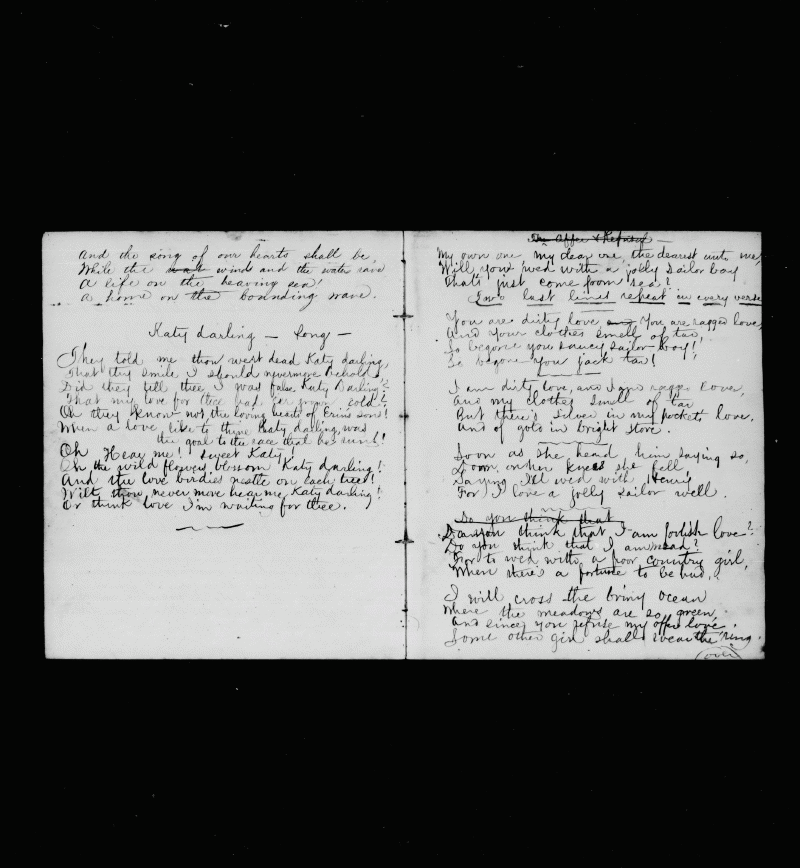 And the song of our hearts shall be,
While the wind and the water rave
A life on the heaving sea!
A home on the bounding wave.
Katy darling — Song —
They told me thou wert dead Katy darling,
That thy smile I should nevermore behold!
Did they tell thee I was false Katy Darling?
That my love for thee had e'er grown cold?
Oh they know not the loving hearts of Erin's sons!
When a love like to thine Katy darling, was
the goal to the race that he runs!
Oh Hear me! sweet Katy!
Oh the wild flowers blossom Katy darling!
And the love birdies nestle on each tree!
Wilt thou never more hear me, Katy darling!
Or think love I'm waiting for thee.
The Offer & Refusal —
My own one my dear one, the dearest unto me,
Will you wed with a jolly sailor boy
That's just come from sea?
Two last lines repeat in every verse
You are dirty love and You are ragged love,
And your clothes smell of tar
So begone you saucy sailor boy!
So begone you jack tar!
I am dirty love, and I am ragged love,
And my clothes smell of tar
But there's silver in my pockets love,
And of gold in bright store.
Soon as she heard him saying so,
Down on her knees she fell,
Saying I'll wed with Henry
For I love a jolly sailor well.
Do you think that
Do you think that I am foolish love?
Do you think that I am mad?
For to wed with a poor country girl,
When there's a fortune to be had.
I will cross the briny ocean
Where the meadows are so green
And since you refuse my offer love.
Some other girl shall wear the ring.
(over)